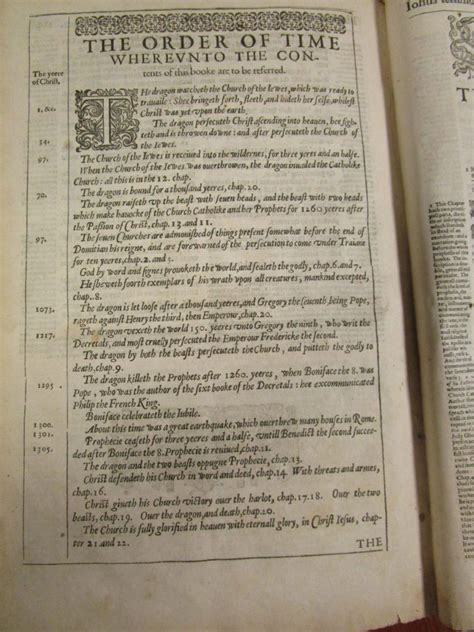 THE ORDER OF TIME
WHEREVNTO THE CON-
tents of this booke are to be referred.
The yeere
of Christ.
1. &c.
THe dragon watcheth the Church of the Iewes, which was ready to
trauaile: Shee bringeth forth, fleeth, and hideth her selfe, whilest
Christ was yet vpon the earth.
34.
The dragon persecuteth Christ ascending into heauen, hee figh-
teth and is throwen downe: and after persecuteth the Church of
the Iewes.
97.
The Church of the Iewes is receiued into the wildernes, for three yeres and an halfe.
When the Church of the Iewes was ouerthrowen, the dragon inuaded the Catholike
Church: all this is in the 12. chap.
The dragon is bound for a thousand yeeres, chap. 20.
70.
The dragon raiseth vp the beast with seuen heads, and the beast with two heads
which make hauocke of the Church Catholike and her Prophets for 1260 yeeres after
the Passion of Christ, chap. 13. and 11.
97.
The seuen Churches are admonished of things present somewhat before the end of
Domitian his reigne, and are forewarned of the persecution to come vnder Traiane
for ten yeeres, chap. 2. and 3.
God by word and signes prouoketh the world, and sealeth the godly, chap. 6. and 7.
Hesheweth foorth exemplars of his wrath vpon all creatures, mankind excepted,
chap. 8.
1073.
The dragon is let loose after a thousand yeeres, and Gregory the seuenth being Pope,
rageth against Henry the third, then Emperour, chap. 20.
1217.
The dragon vexeth the world 150. yeeres vnto Gregory the ninth, who writ the
Decretals, and most cruelly persecuted the Emperour Fredericke the second.
The dragon by both the beasts persecuteth the Church, and putteth the godly to
death, chap. 9.
1295
The dragon killeth the Prophets after 1260. yeeres, when Boniface the 8. was
Pope, who was the author of the sixt booke of the Decretals: hee excommunicated
Philip the French King.
1300.
Boniface celebrateth the Iubile.
1301.
About this time was a great earthquake, which ouerthrew many houses in Rome.
1305.
Prophecie ceaseth for three yeeres and a halfe, vntill Benedict the second succee-
ded after Boniface the 8. Prophecie is reuiued, chap. 11.
The dragon and the two beasts oppugne Prophecie, chap. 13.
Christ defendeth his Church in word and deed, chap. 14. With threats and armes,
chap. 16.
Christ giueth his Church victory ouer the harlot, chap. 17. 18. Ouer the two
beasts, chap. 19. Ouer the dragon, and death, chap. 20.
The Church is fully glorified in heauen with eternall glory, in Christ Iesus, chap-
ter 21 and 22.
THE